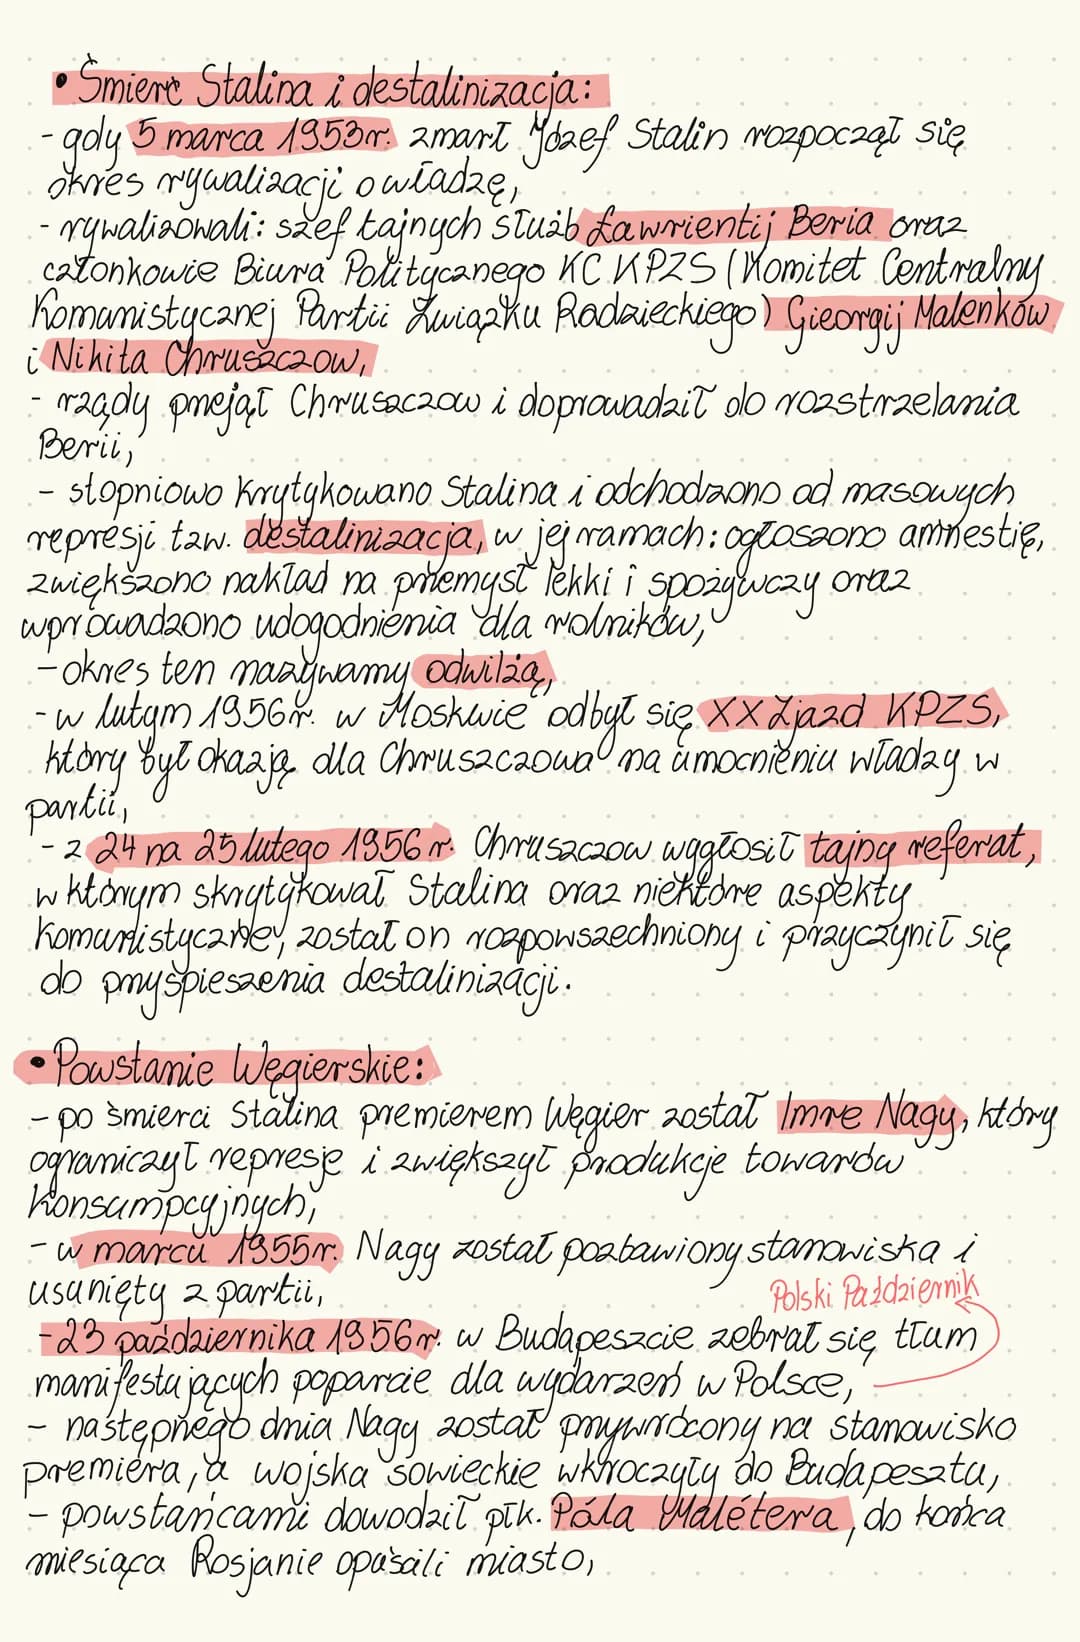 • Śmierć Stalina i destalinizacja:
- gdy 5 marca 1953r. zmarł Józef Stalin rozpoczął się
okres rywalizacji o władzę,
- rywalizowali: szef tajnych służb Ławrientij Beria oraz
członkowie Biura Politycznego KC KPZS (Komitet Centralny
Komunistycznej Partii Związku Radzieckiego) Gieorgij Malenkow
i Nikita Chruszczow,
- rządy przejął Chruszczow i doprowadził do rozstrzelania
Berii,
- stopniowo krytykowano Stalina i odchodzono od masowych
represji tzw. destalinizacja, w jej ramach: ogłoszono amnestię,
zwiększono nakład na przemysł lekki i spożywczy oraz
wprowadzono udogodnienia dla rolników,
- okres ten nazywamy odwilżą,
- w lutym 1956r. w Moskwie odbył się XX Zjazd KPZS,
który był okazją dla Chruszczowa na umocnieniu władzy w
partii,
- z 24 na 25 lutego 1956 r. Chruszczow wygłosił tajny referat,
w którym skrytykował Stalina oraz niektóre aspekty
komunistyczne, został on rozpowszechniony i przyczynił się
do przyśpieszenia destalinizacji.
• Powstanie Węgierskie:
- po śmierci Stalina premierem Węgier został Imre Nagy, który
ograniczył represje i zwiększył produkcje towarów
konsumpcyjnych,
- w marcu 1955r. Nagy został pozbawiony stanowiska i
usunięty z partii,
Polski Październik
- 23 października 1956r. w Budapeszcie zebrał się tłum
manifestujących poparcie dla wydarzeń w Polsce,
- następnego dnia Nagy został przywrócony na stanowisko
premiera, a wojska sowieckie wkroczyły do Budapesztu,
- powstańcami dowodził płk. Pála Malétera, do końca
miesiąca Rosjanie opuścili miasto,